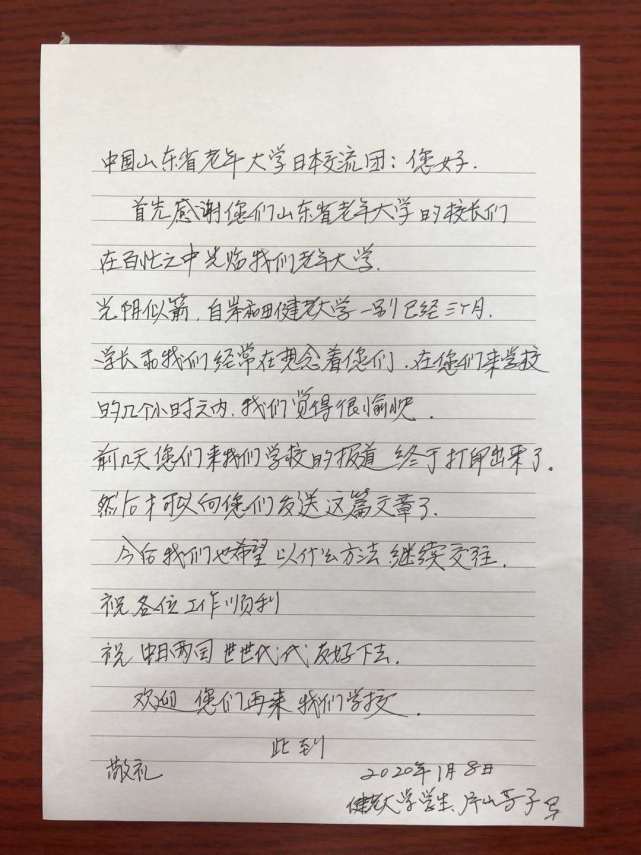 中国山东省老年大学日本交流团：您好.
首先感谢您们山东省老年大学的校长们
在百忙之中光临我们老年大学.
光阴似箭.自岸和田健老大学一别已经三个月.
学长和我们经常在想念着您们.在您们来学校
的几个小时之内.我们觉得很愉快.
前几天您们来我们学校的报道终于打印出来了。
然后才可以向您们发送这篇文章了.
今后我们也希望以什么方法继续交往.
祝各位工作顺利
祝中日两国世世代代友好下去.
欢迎您们再来我们学校.
此致
敬礼
2020年1月8日
健老大学学生、片山芳子写